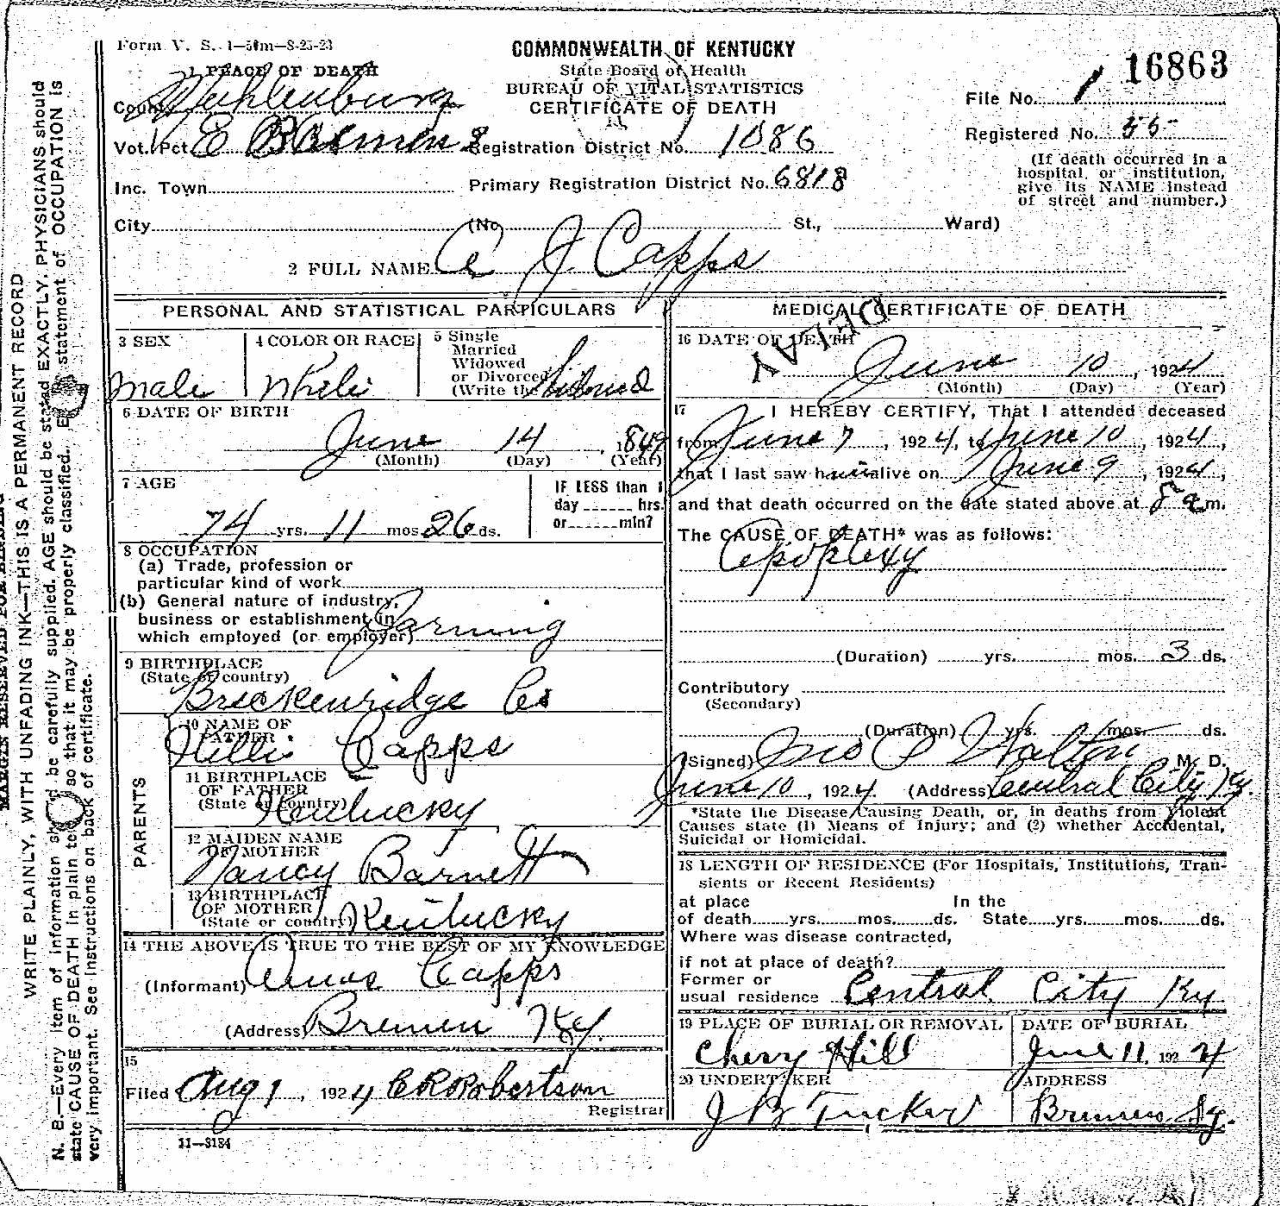 Form V. S. 1—50m—8-25-23
COMMONWEALTH OF KENTUCKY
State Board of Health
BUREAU OF VITAL STATISTICS
CERTIFICATE OF DEATH
16863
File No. 1
Registered No. 55
(If death occurred in a hospital or institution, give its NAME instead of street and number.)
1 PLACE OF DEATH
County Muhlenburg
Vot. Pct. E Bremen 8 Registration District No. 1086
Inc. Town Primary Registration District No. 6818
City (No. St., Ward)
2 FULL NAME A J. Capps
PERSONAL AND STATISTICAL PARTICULARS
3 SEX
Male
4 COLOR OR RACE
White
5 Single
Married
Widowed
or Divorced
(Write the
6 DATE OF BIRTH
June 14, 1849
(Month) (Day) (Year)
7 AGE
74 yrs. 11 mos 26 ds.
IF LESS than 1
day hrs.
or min?
8 OCCUPATION
(a) Trade, profession or
particular kind of work
(b) General nature of industry,
business or establishment in
which employed (or employer) Farming
9 BIRTHPLACE
(State or country)
Breckenridge Co
PARENTS
10 NAME OF
FATHER
Capps
11 BIRTHPLACE
OF FATHER
(State or country)
Kentucky
12 MAIDEN NAME
OF MOTHER
Nancy Barnett
13 BIRTHPLACE
OF MOTHER
(State or country) Kentucky
14 THE ABOVE IS TRUE TO THE BEST OF MY KNOWLEDGE
(Informant) Amos Capps
(Address) Bremen Ky.
15
Filed Aug 1, 1924 C R Robertson
Registrar
11—3184
MEDICAL CERTIFICATE OF DEATH
DELAY
16 DATE OF DEATH
June 10, 1924
(Month) (Day) (Year)
17 I HEREBY CERTIFY, That I attended deceased
from June 7, 1924, to June 10, 1924,
that I last saw him alive on June 9, 1924,
and that death occurred on the date stated above at 5 a m.
The CAUSE OF DEATH* was as follows:
Apoplexy
(Duration) yrs. mos. 3 ds.
Contributory
(Secondary)
(Duration) yrs. mos. ds.
(Signed) Jno P Walton M. D.
June 10, 1924 (Address) Central City Ky.
*State the Disease Causing Death, or, in deaths from Violent
Causes state (1) Means of Injury; and (2) whether Accidental,
Suicidal or Homicidal.
18 LENGTH OF RESIDENCE (For Hospitals, Institutions, Tran-
sients or Recent Residents)
at place In the
of death yrs. mos. ds. State yrs. mos. ds.
Where was disease contracted,
if not at place of death?
Former or
usual residence Central City Ky
19 PLACE OF BURIAL OR REMOVAL
Chery Hill
DATE OF BURIAL
June 11, 1924
20 UNDERTAKER
J B Tucker
ADDRESS
Bremen Ky.
MARGIN RESERVED FOR BINDING
WRITE PLAINLY, WITH UNFADING INK—THIS IS A PERMANENT RECORD
N. B.—Every item of information should be carefully supplied. AGE should be stated EXACTLY. PHYSICIANS should
state CAUSE OF DEATH in plain terms so that it may be properly classified. Exact statement of OCCUPATION is
very important. See instructions on back of certificate.